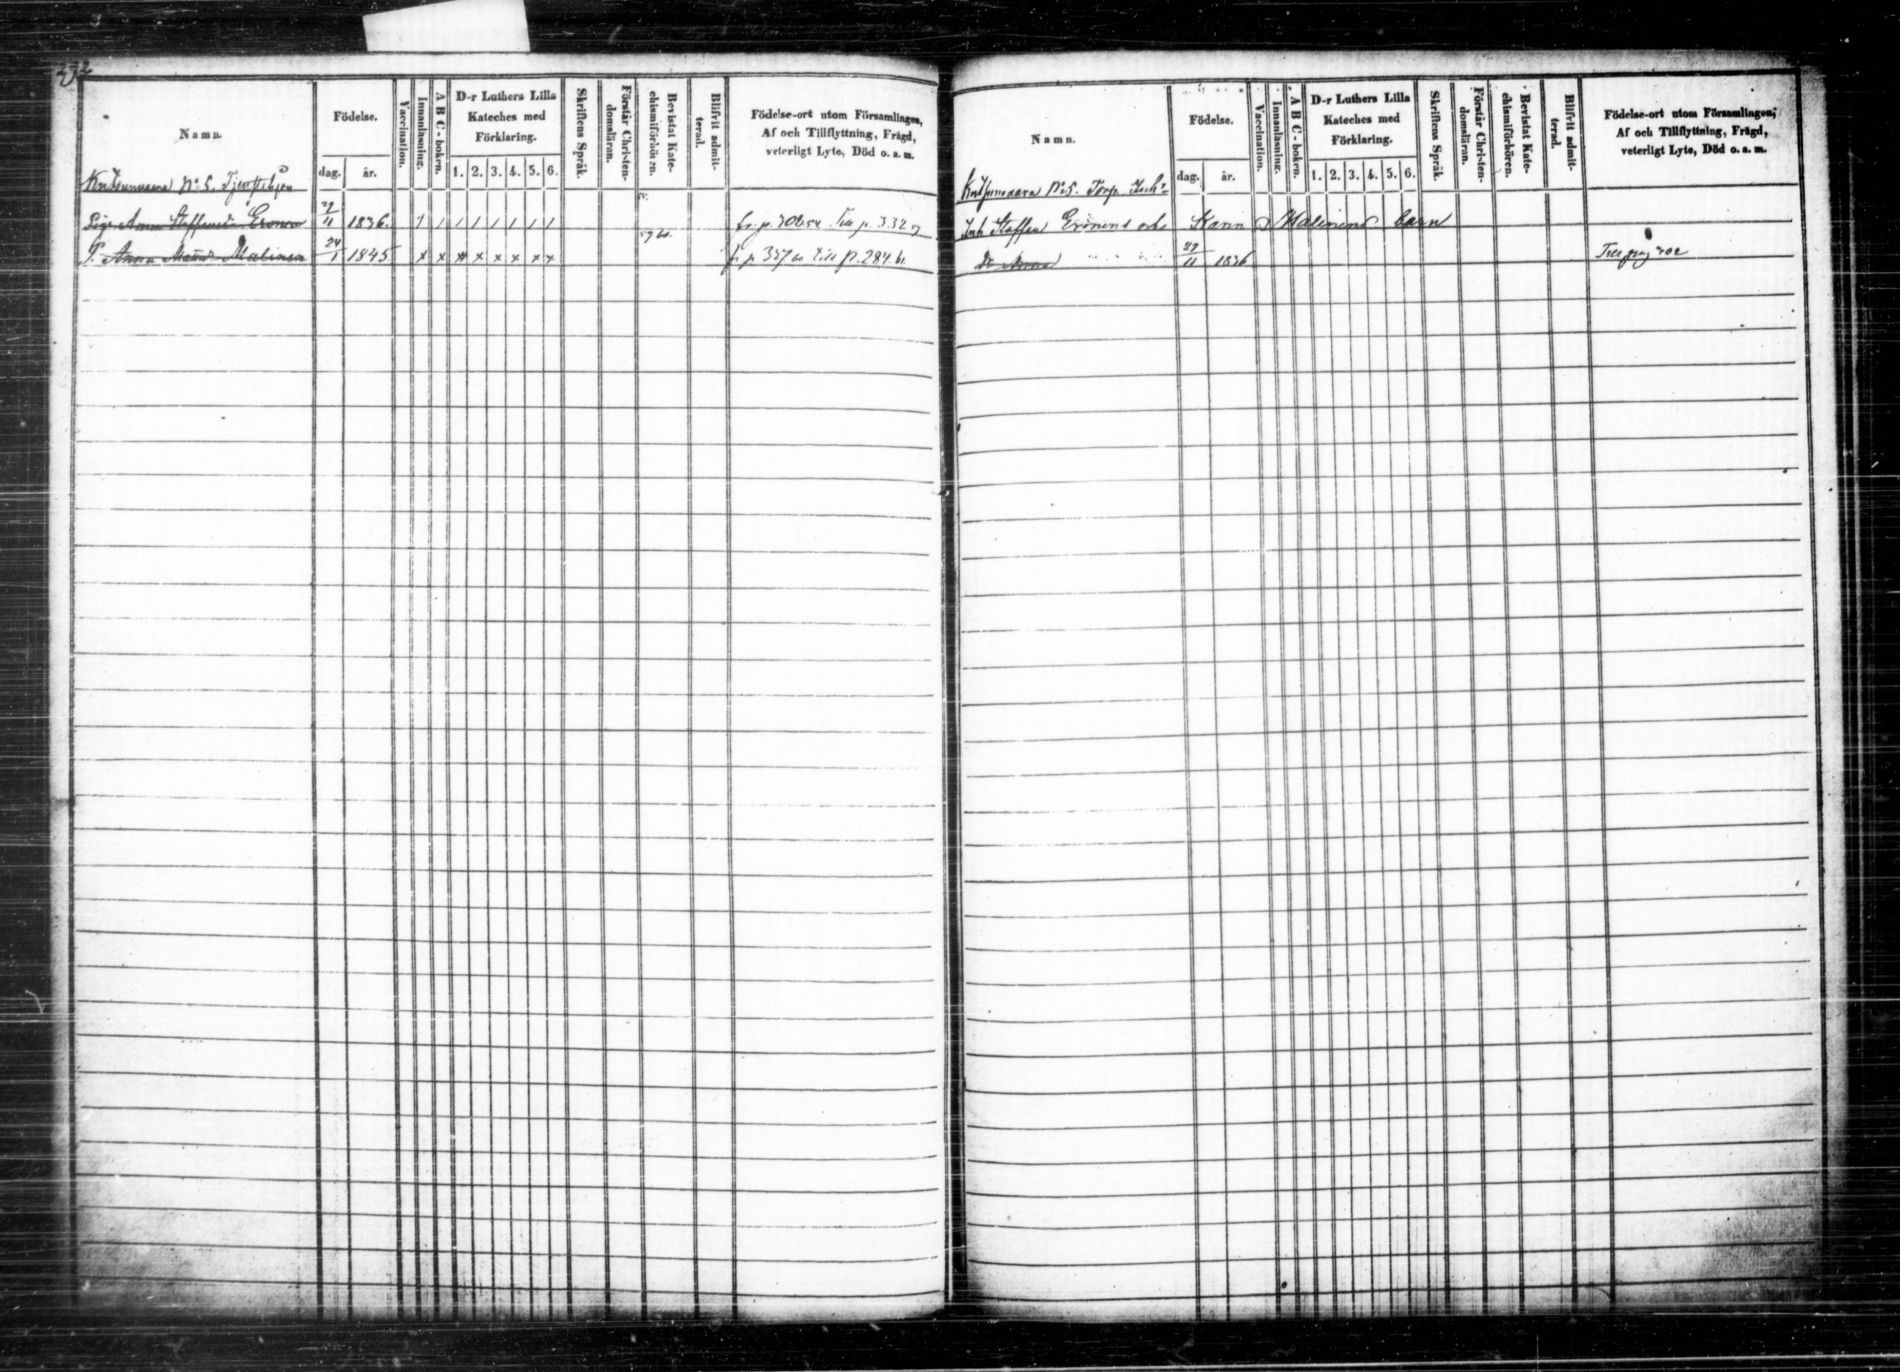 232
Namn.
Födelse.
dag. år.
Vaccination.
Innanläsning.
A B C-boken.
D-r Luthers Lilla
Kateches med
Förklaring.
1. 2. 3. 4. 5. 6.
Skriftens Språk.
Förstår Christen-
domsläran.
Bevistat Kate-
chismiförhören.
Blifvit admit-
terad.
Födelse-ort utom Församlingen,
Af och Tillflyttning, Frägd,
veterligt Lyte, Död o. s. m.
No 5.
Anna Staffansd. Eronen 29/11 1836. fr. p. Till p. 332
P. Anna Malinen 24/1 1845 x x x x x x x x fr p 357 till p. 284
Namn.
Födelse.
dag. år.
Vaccination.
Innanläsning.
A B C-boken.
D-r Luthers Lilla
Kateches med
Förklaring.
1. 2. 3. 4. 5. 6.
Skriftens Språk.
Förstår Christen-
domsläran.
Bevistat Kate-
chismiförhören.
Blifvit admit-
terad.
Födelse-ort utom Församlingen,
Af och Tillflyttning, Frägd,
veterligt Lyte, Död o. s. m.
No 5. Torp.
Inh. Staffan Eronens och Karin Malinens barn
Dr Anna 29/11 1836 Till pag 202